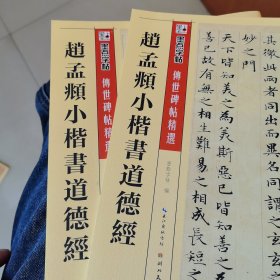 墨点字帖
傳世碑帖精選
趙孟頫小楷書道德經
墨点字帖
傳世碑帖精選
趙孟頫小楷書道德經
墨点字帖 編
其徼此兩者同出而異名同
妙之門
天下皆知美之為美斯惡已皆知善之為
善已故有無之相生難易之相成長短之